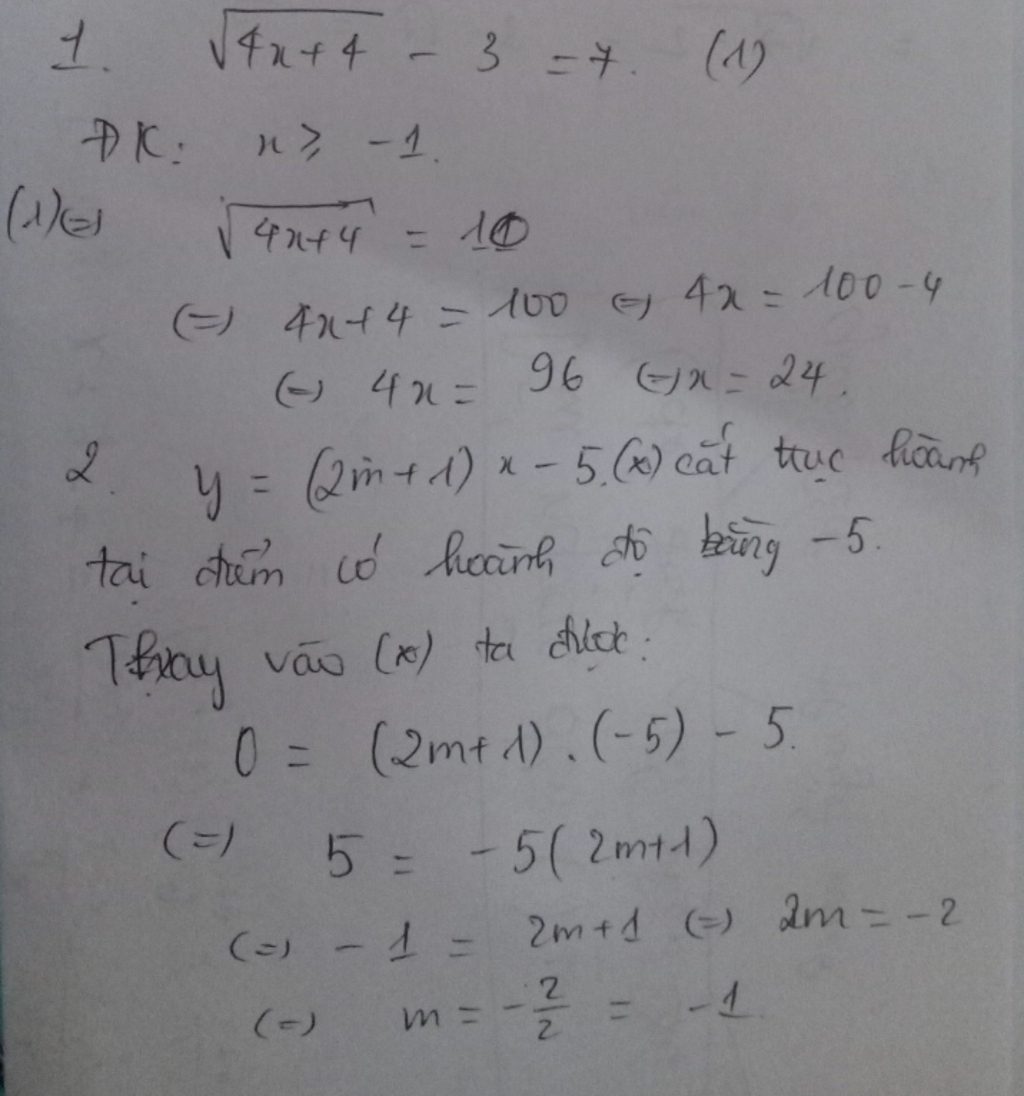 1. √4x+4 - 3 = 7. (1)
ĐK: x ≥ -1.
(1)(=) √4x+4 = 10
(=) 4x+4 = 100 (=) 4x = 100-4
(=) 4x = 96 (=) x = 24.
2. y = (2m+1) x - 5.(*) cắt trục hoành
tại điểm có hoành độ bằng -5.
Thay vào (*) ta được:
0 = (2m+1).(-5) - 5.
(=) 5 = -5(2m+1)
(=) -1 = 2m+1 (=) 2m = -2
(=) m = -2/2 = -1